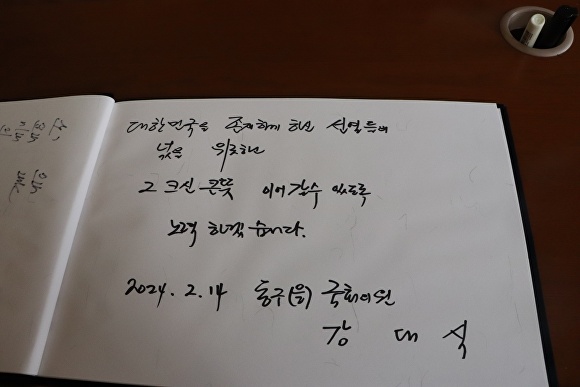 대한민국을 존재하게 하신 선열들의
넋을 위로하고
그 크신 큰뜻 이어 갈수 있도록
노력 하겠습니다.
2024. 2. 14 동구(을) 국회의원
강 대 식